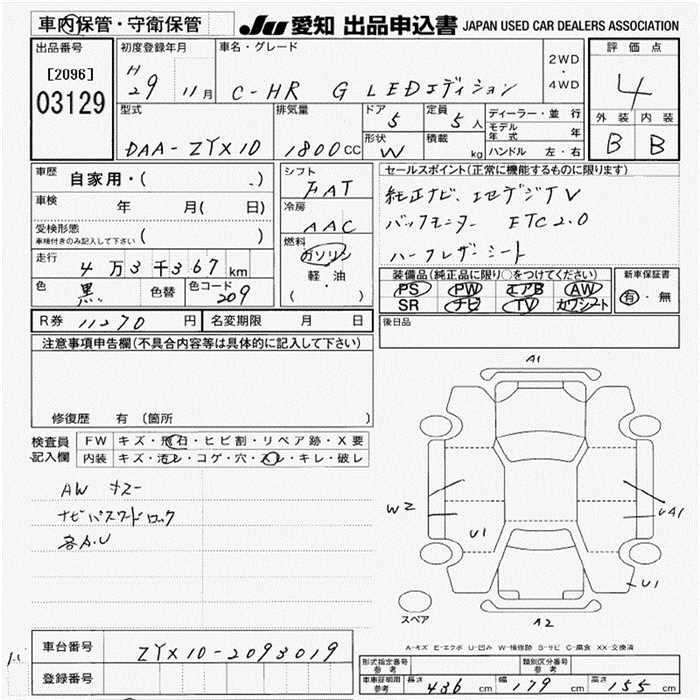 車内保管・守衛保管
JU 愛知 出品申込書 JAPAN USED CAR DEALERS ASSOCIATION
出品番号
[2096]
03129
初度登録年月
H 29 11月
車名・グレード
C-HR G LEDエディション
2WD
・
4WD
評価点
4
外装 内装
B B
型式
DAA-ZYX10
排気量
1800CC
ドア
5
形状
W
定員
5人
積載
kg
ディーラー・並行
モデル年式 年
ハンドル 左・右
車歴
自家用・( )
車検
年 月( 日)
受検形態
車検付きのみ記入して下さい ( )
走行
4万3千367km
色
黒
色替
色コード
209
シフト
FAT
冷房
AAC
燃料
ガソリン
軽・油
( )
セールスポイント(正常に機能するものに限ります)
純正ナビ、フルセグTV
バックモニター ETC2.0
ハーフレザーシート
装備品(純正品に限り○をつけてください)
PS PW エアB AW
SR ナビ TV カワシート
新車保証書
有・無
R券 11270円
名変期限 月 日
後日品
注意事項申告欄(不具合内容等は具体的に記入して下さい)
修復歴 有 (箇所 )
検査員
記入欄
FW キズ・飛石・ヒビ割・リペア跡・X要
内装 キズ・汚レ・コゲ・穴・スレ・キレ・破レ
AW キズー
ナビパスワードロック
各A.U
A1
W2
U1
UA1
U1
A2
スペア
A-キズ E-エクボ U-凹み W-補修跡 S-サビ C-腐食 XX-交換済
車台番号
ZYX10-2093019
登録番号
形式指定番号
参考
類別区分番号
参考
車車証明用
参考
長さ 436 cm 幅 179 cm 高さ 155 cm